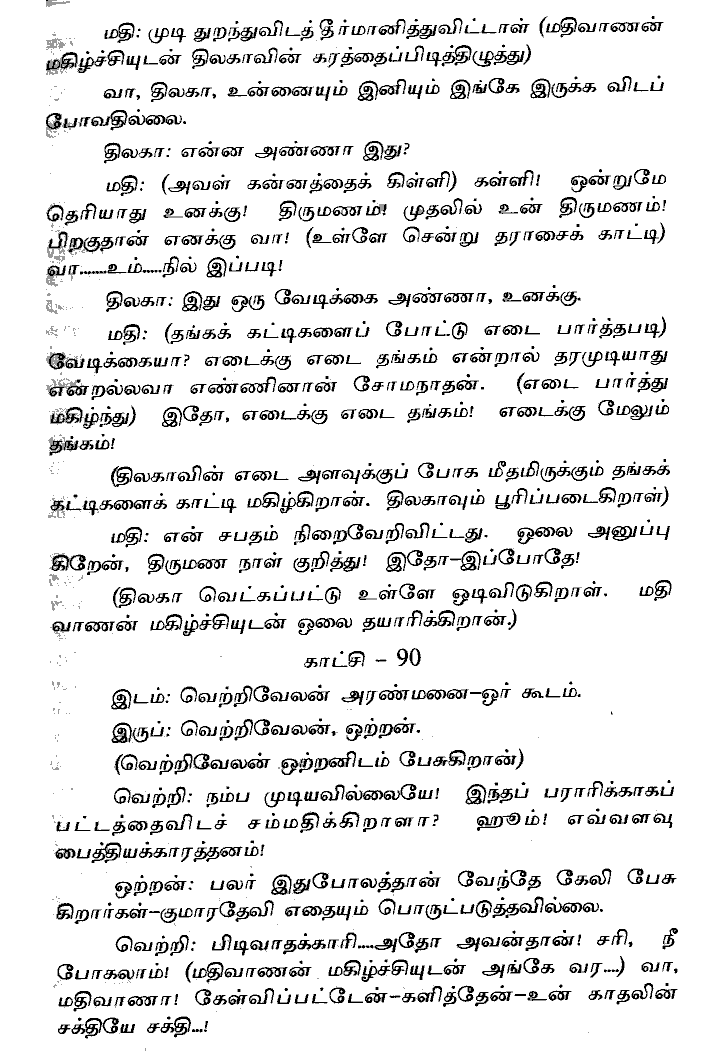 மதி: முடி துறந்துவிடத் தீர்மானித்துவிட்டாள் (மதிவாணன்
மகிழ்ச்சியுடன் திலகாவின் கரத்தைப்பிடித்திழுத்து)
வா, திலகா, உன்னையும் இனியும் இங்கே இருக்க விடப்
போவதில்லை.
திலகா: என்ன அண்ணா இது?
மதி: (அவள் கன்னத்தைக் கிள்ளி) கள்ளி! ஒன்றுமே
தெரியாது உனக்கு! திருமணம்! முதலில் உன் திருமணம்!
பிறகுதான் எனக்கு வா! (உள்ளே சென்று தராசைக் காட்டி)
வா.......உம்.....நில் இப்படி!
திலகா: இது ஒரு வேடிக்கை அண்ணா, உனக்கு.
மதி: (தங்கக் கட்டிகளைப் போட்டு எடை பார்த்தபடி)
வேடிக்கையா? எடைக்கு எடை தங்கம் என்றால் தரமுடியாது
என்றல்லவா எண்ணினான் சோமநாதன். (எடை பார்த்து
மகிழ்ந்து) இதோ, எடைக்கு எடை தங்கம்! எடைக்கு மேலும்
தங்கம்!
(திலகாவின் எடை அளவுக்குப் போக மீதமிருக்கும் தங்கக்
கட்டிகளைக் காட்டி மகிழ்கிறான். திலகாவும் பூரிப்படைகிறாள்)
மதி: என் சபதம் நிறைவேறிவிட்டது. ஓலை அனுப்பு
கிறேன், திருமண நாள் குறித்து! இதோ-இப்போதே!
(திலகா வெட்கப்பட்டு உள்ளே ஓடிவிடுகிறாள். மதி
வாணன் மகிழ்ச்சியுடன் ஓலை தயாரிக்கிறான்.)
காட்சி - 90
இடம்: வெற்றிவேலன் அரண்மனை-ஓர் கூடம்.
இருப்: வெற்றிவேலன், ஒற்றன்.
(வெற்றிவேலன் ஒற்றனிடம் பேசுகிறான்)
வெற்றி: நம்ப முடியவில்லையே! இந்தப் பராரிக்காகப்
பட்டத்தைவிடச் சம்மதிக்கிறாளா? ஹூம்! எவ்வளவு
பைத்தியக்காரத்தனம்!
ஒற்றன்: பலர் இதுபோலத்தான் வேந்தே கேலி பேசு
கிறார்கள்-குமாரதேவி எதையும் பொருட்படுத்தவில்லை.
வெற்றி: பிடிவாதக்காரி....அதோ அவன்தான்! சரி, நீ
போகலாம்! (மதிவாணன் மகிழ்ச்சியுடன் அங்கே வர....) வா,
மதிவாணா! கேள்விப்பட்டேன்-களித்தேன்-உன் காதலின்
சக்தியே சக்தி...!